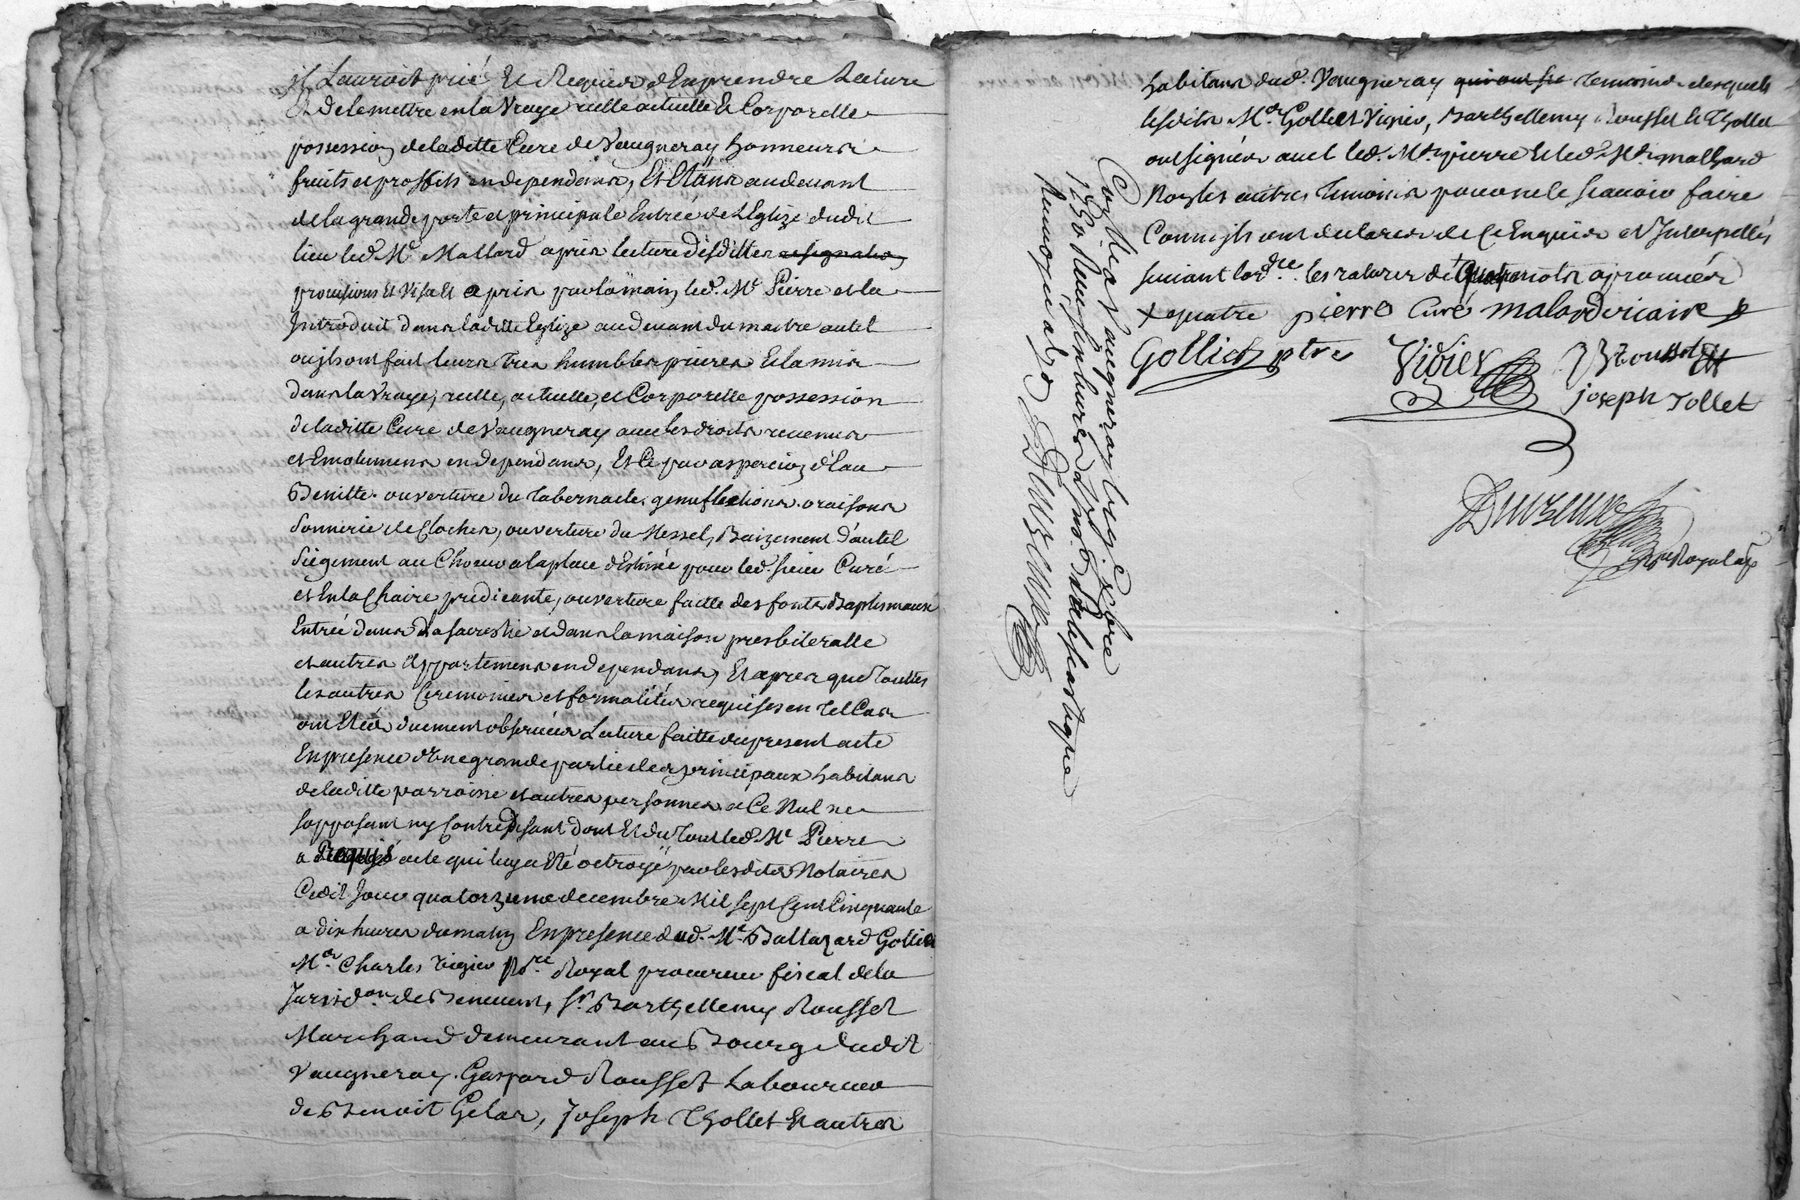 il Lauroit prié Et Requis d'En prendre Lecture
Et de le mettre en la Vraye reelle actuelle Et Corporelle
possession de laditte Cure de Vaugneray honneurs
fruits et proffits en dependans, Et Etans au devant
de la grande porte et principale Entrée de L'Eglize dudit
lieu led. Me Mallard apres lecture desdittes resignation
provisions Et Visa Et a pris par la main led. Me Pierre et la
Introduit dans laditte Eglize au devant du maitre autel
ou ils ont fait leurs tres humbles prieres Et la mis
dans la Vraye, reelle, actuelle, et Corporelle possession
de laditte Cure de Vaugneray avec les droits revenus
et Emolumens en dependans, Et Ce par aspercion d'Eau
Benitte. ouverture du Tabernacle, genuflections. oraisons
Sonnerie de Cloches, ouverture du Messel, Baizement d'autel
Siegement au Choeur a la place destinée pour led. sieur Curé
et En la Chaire predicante, ouverture faitte des fonts Baptismaux
Entrée dans La Sacrestie et dans la maison presbiteralle
et autres Appartemens en dependans, Et apres que Touttes
les autres Ceremonies et formalités requises en Tel Cas
ont Eté duement observées Lecture faitte du present acte
En presence d'Une grande partie des principaux habitans
de laditte parroisse et autres personnes a Ce Nul ne
sopposant ny Contredisant dont Et du Tout led. Me Pierre
a Requis acte qui luy a Eté octroyé par lesdits Notaires
Cedit Jour quatorzieme decembre Mil Sept Cent Cinquante
a dix heures du matin En presence dud. Me Baltazard Gollier
Me Charles Vizier Nore Royal procureur fiscal de la
Jurisdon de Benevent, Sr Barthellemy Rousset
Marchand demeurant au Bourg dudit
Vaugneray. Gaspard Rousset Laboureur
de Benoit Gelas, Joseph Thollet Et autres
habitans dud. Vaugneray qui ont sie Temoins desquels
lesdits Mes Gollier Vizier, Barthellemy Rousset Et Thollet
ont signés avec led. Me pierre Et led. Me mallard
Non les autres Temoins pour ne le scavoir faire
Comme ils ont declarés de Ce Enquis et Interpellés
suivant lordce les ratures de + mots aprouvés
+ quatre pierre Curé malard vicaire
Gollier ptre Vizier B Rousset
joseph Tollet
Duvzeux
Nre Royal ap
Con.lé a Vaugneray le 15 Xbre
1750 Reçu